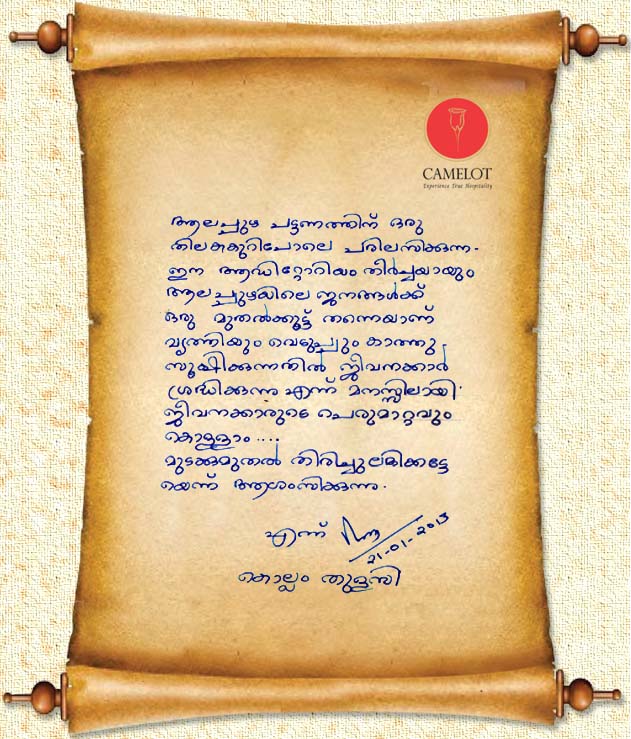 CAMELOT
Experience True Hospitality
ആലപ്പുഴ പട്ടണത്തിന് ഒരു
തിലകക്കുറിപോലെ പരിലസിക്കുന്ന
ഈ ആഡിറ്റോറിയം തീർച്ചയായും
ആലപ്പുഴയിലെ ജനങ്ങൾക്ക്
ഒരു മുതൽക്കൂട്ട് തന്നെയാണ്
വൃത്തിയും വെടുപ്പും കാത്തു
സൂക്ഷിക്കുന്നതിൽ ജീവനക്കാർ
ശ്രദ്ധിക്കുന്നു എന്ന് മനസ്സിലായി
ജീവനക്കാരുടെ പെരുമാറ്റവും
കൊള്ളാം ....
മുടക്കുമുതൽ തിരിച്ചു ലഭിക്കട്ടേ
യെന്ന് ആശംസിക്കുന്നു.
എന്ന്
21-01-2013
കൊല്ലം തുളസി